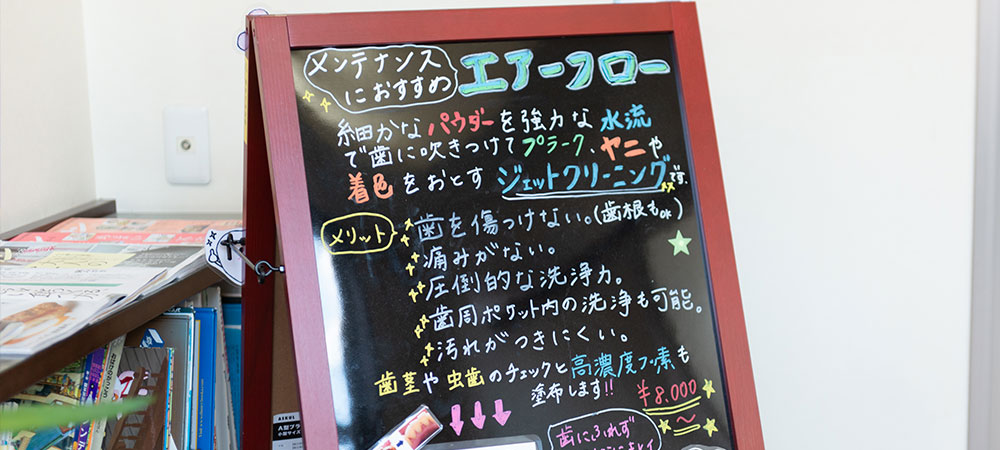 メンテナンス
におすすめ
エアーフロー
細かなパウダーを強力な水流
で歯に吹きつけてプラーク、ヤニや
着色をおとすジェットクリーニングです。
メリット
歯を傷つけない。(歯根もOK)
痛みがない。
圧倒的な洗浄力。
歯周ポケット内の洗浄も可能。
汚れがつきにくい。
歯茎や虫歯のチェックと高濃度フッ素も
塗布します!!
¥8.000
～
歯にふれず
ASKUL
A型ブラ